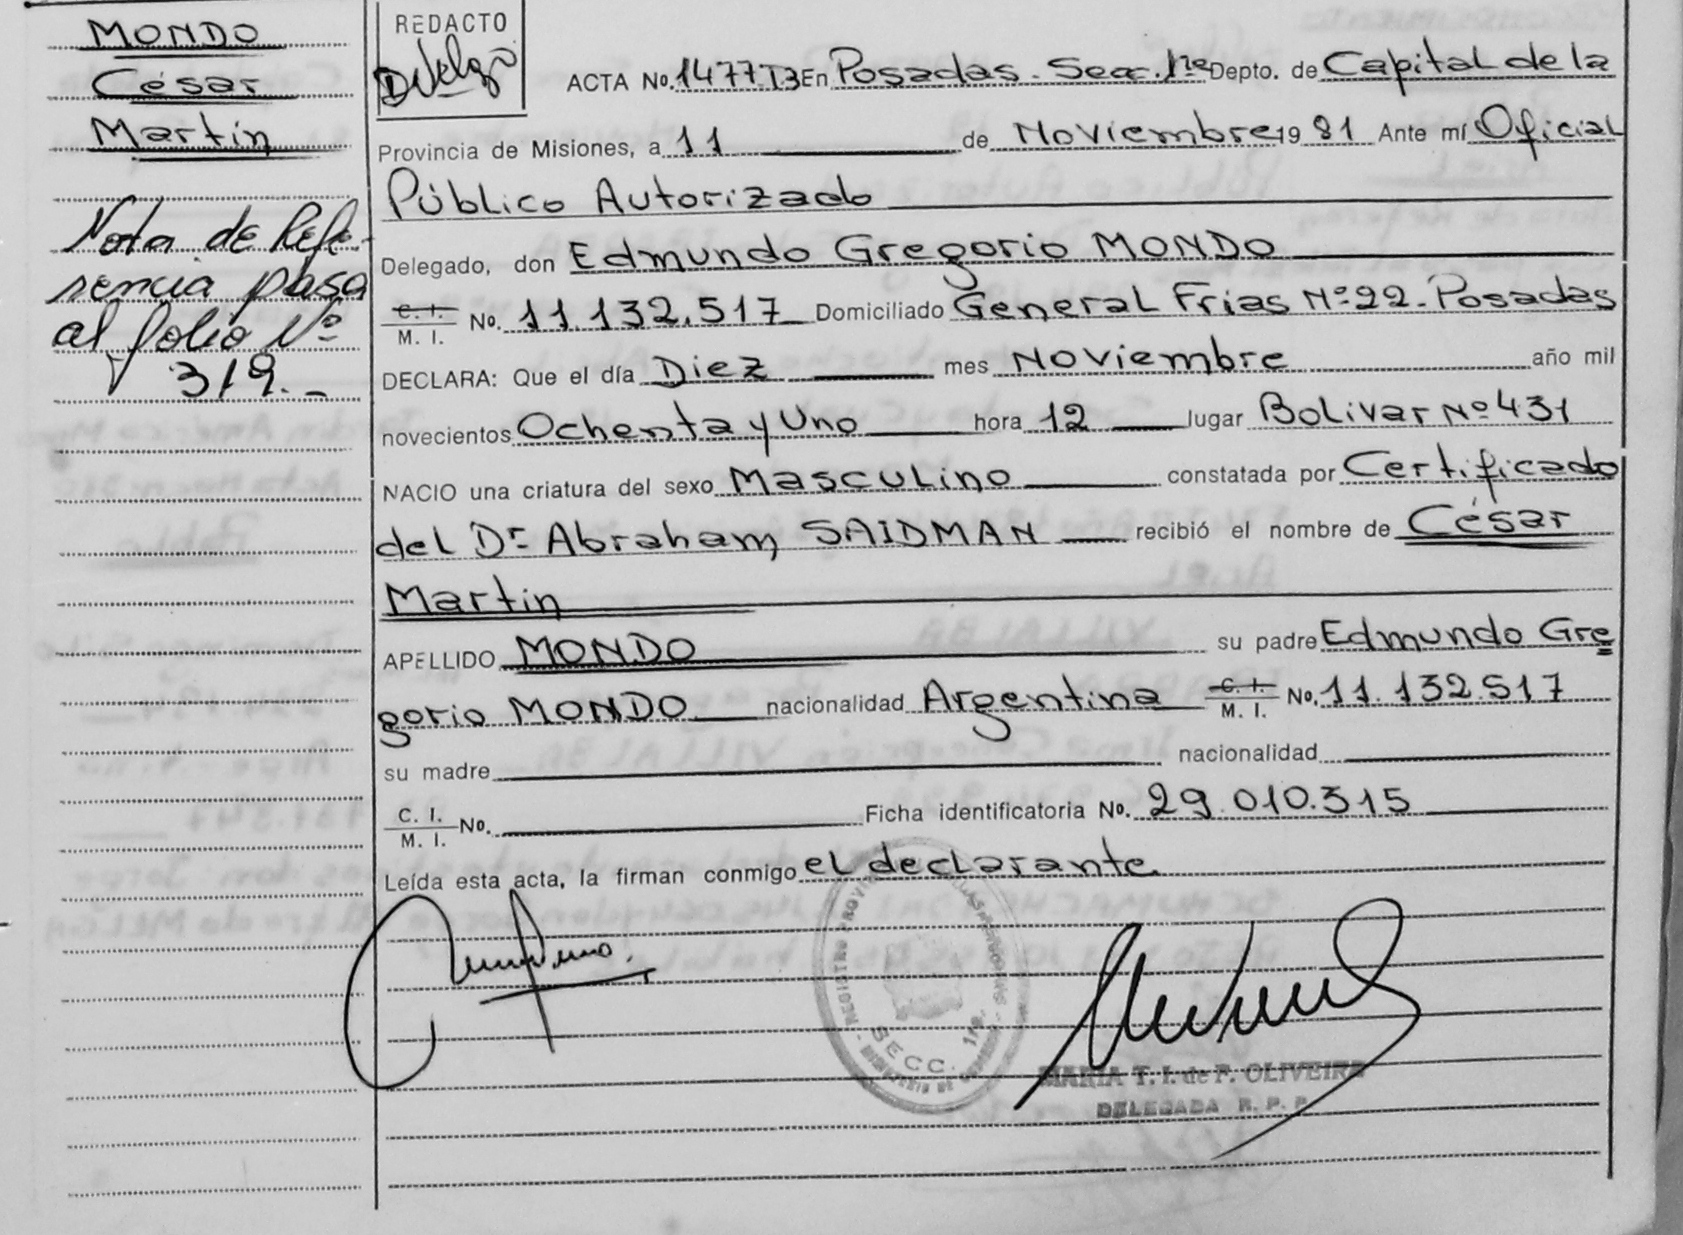 MONDO
César
Martin
Nota de Refe-
rencia pasa
al folio Nº
319.-
REDACTO
ACTA No. 1477.T3 En Posadas. Secc. 1ra Depto. de Capital de la
Provincia de Misiones, a 11 de Noviembre 19 81 Ante mí Oficial
Público Autorizado
Delegado, don Edmundo Gregorio MONDO
C. I. / M. I. No. 11.132.517 Domiciliado General Frias Nº 22. Posadas
DECLARA: Que el día Diez mes Noviembre año mil
novecientos Ochenta y Uno hora 12 lugar Bolivar Nº 431
NACIO una criatura del sexo Masculino constatada por Certificado
del Dr. Abraham SAIDMAN recibió el nombre de César
Martin
APELLIDO MONDO su padre Edmundo Gre
gorio MONDO nacionalidad Argentina C. I. / M. I. No. 11.132.517
su madre nacionalidad
C. I. / M. I. No. Ficha identificatoria No. 29.010.315
Leída esta acta, la firman conmigo el declarante
SECC. 1ra.
MARIA T. I. de P. OLIVEIRA
DELEGADA R. P. P.